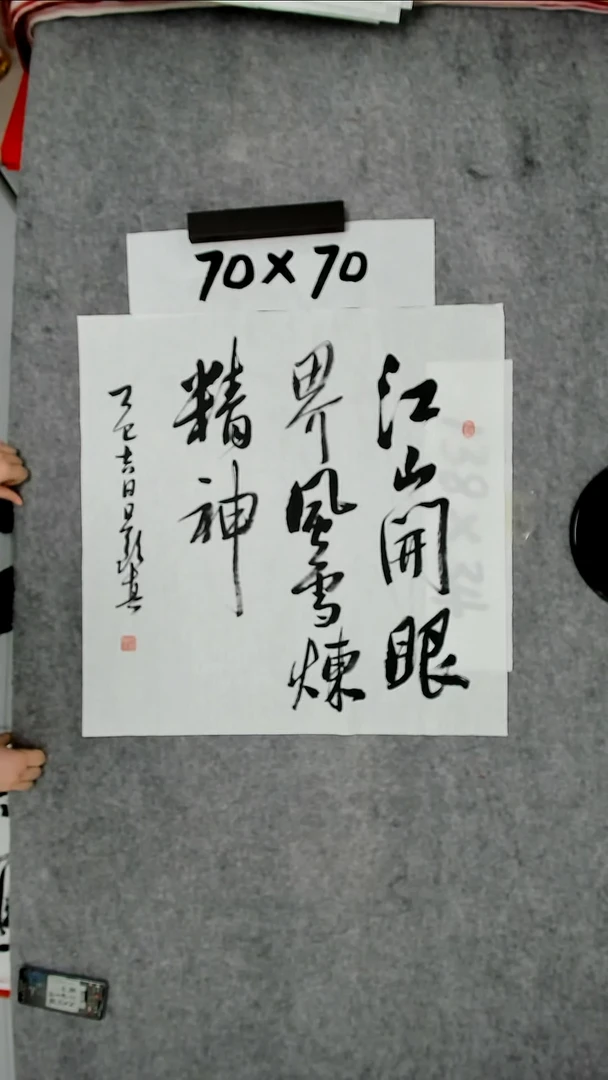 70×70
江山開眼
界風雪煉
精神
乙巳吉日